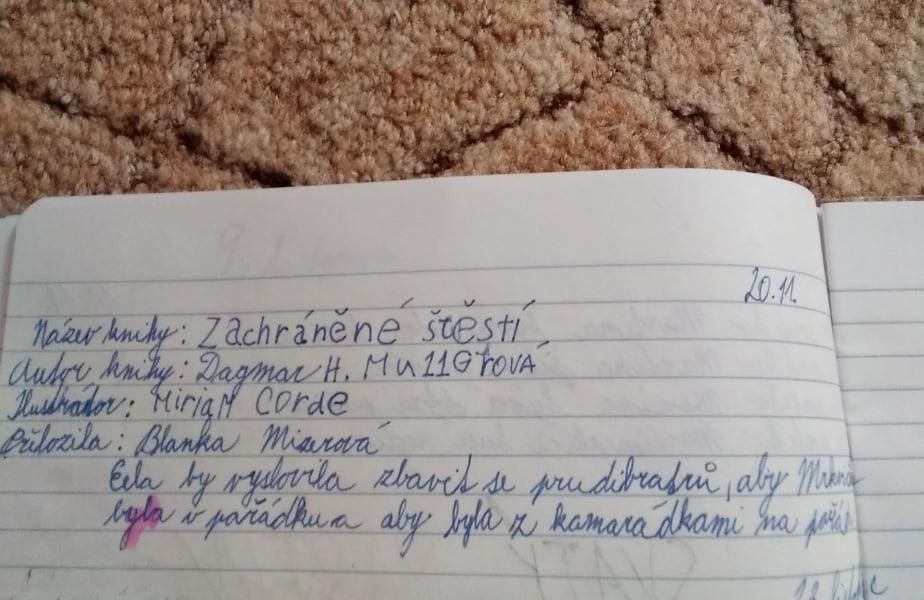 20.11.
Název knihy: Zachráněné štěstí
Autor knihy: Dagmar H. Mu11erová
Ilustrátor: MirjaM Corde
Přiložila: Blanka Mizerová
by vyslovila zbavit se prudibratrů, aby
byla v pořádku a aby byla z kamarádkami na